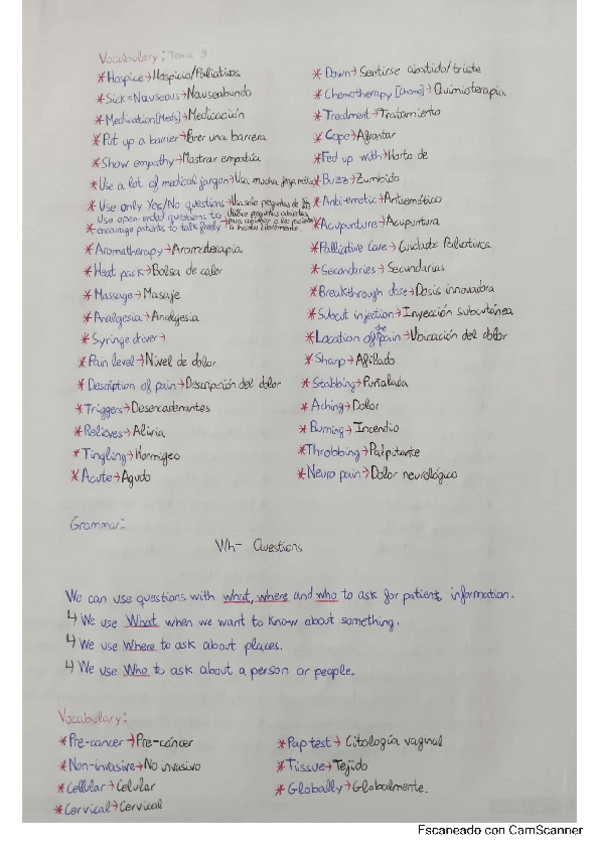 Vocabulary: Tema 3
*Hospice→Hospicio/Paliativos
*Sick=Nauseous→Nauseabundo
*Medication[Meds]→Medicación
*Put up a barrier→Poner una barrera
*Show empathy→Mostrar empatía
*Use a lot of medical jargon→Usa mucha jerga médica
*Use only Yes/No questions→Usa solo preguntas de
*Use open-ended questions to encourage patients to talk freely→Utilice preguntas abiertas para ayudar a los pacientes a hablar libremente.
*Aromatherapy→Aromaterapia
*Heat pack→Bolsa de calor
*Massage→Masaje
*Analgesia→Analgesia
*Syringe driver→
*Pain level→Nivel de dolor
*Description of pain→Descripción del dolor
*Triggers→Desencadenantes
*Relieves→Alivia
*Tingling→Hormigeo
*Acute→Agudo
*Down→Sentirse abatido/triste
*Chemotherapy [Chemo]→Quimioterapia
*Treatment→Tratamiento
*Cope→Afrontar
*Fed up with→Harto de
*Buzz→Zumbido
*Anti-emetic→Antiemético
*Acupunture→Acupuntura
*Palliative care→Cuidados Paliativos
*Secondaries→Secundarias
*Breakthrough dose→Dosis innovadora
*Subcut injection→Inyección subcutánea
*Location of the pain→Ubicación del dolor
*Sharp→Afilado
*Stabbing→Puñalada
*Aching→Dolor
*Burning→Incendio
*Throbbing→Palpitante
*Neuro pain→Dolor neurológico
Grammar:
Wh- Questions
We can use questions with what, where and who to ask for patient information.
↳ We use What when we want to know about something.
↳ We use Where to ask about places.
↳ We use Who to ask about a person or people.
Vocabulary:
*Pre-cancer→Pre-cáncer
*Non-invasive→No invasivo
*Cellular→Celular
*Cervical→Cervical
*Pap test→Citología vaginal
*Tissue→Tejido
*Globally→Globalmente.
Escaneado con CamScanner